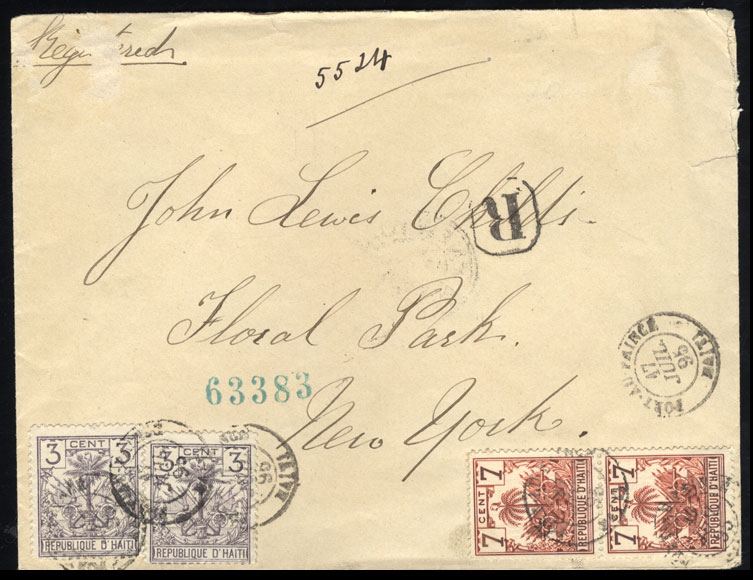 Registered
5524
John Lewis Childs.
R
Floral Park.
PORT-AU-PRINCE HAITI
17
JUIL
96
63383
New York.
3 CENT 3
REPUBLIQUE D'HAITI
3 CENT 3
REPUBLIQUE D'HAITI
HAITI
7 CENT 7
REPUBLIQUE D'HAITI
7 CENT 7
REPUBLIQUE D'HAITI